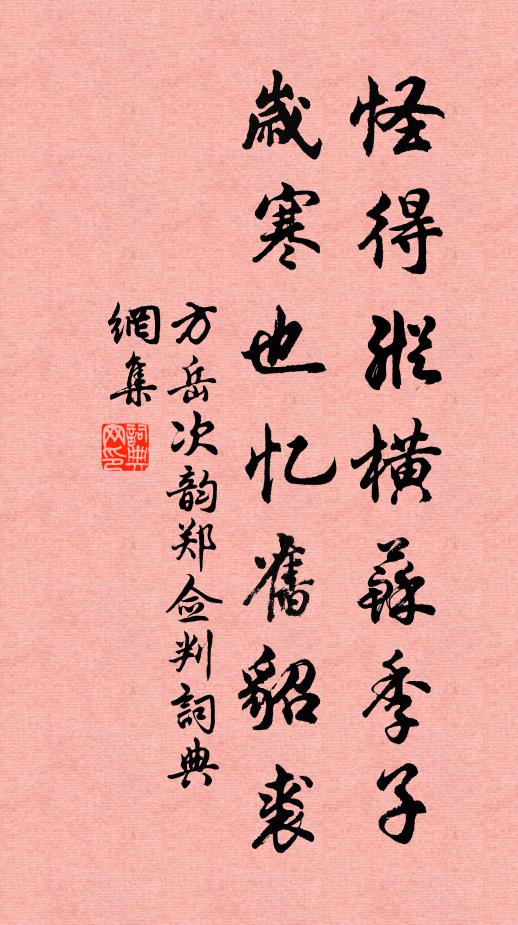 怪得縱橫蘇季子
歲寒也忆舊貂裘
方岳次韵郑佥判詞典
網集
詞典网印